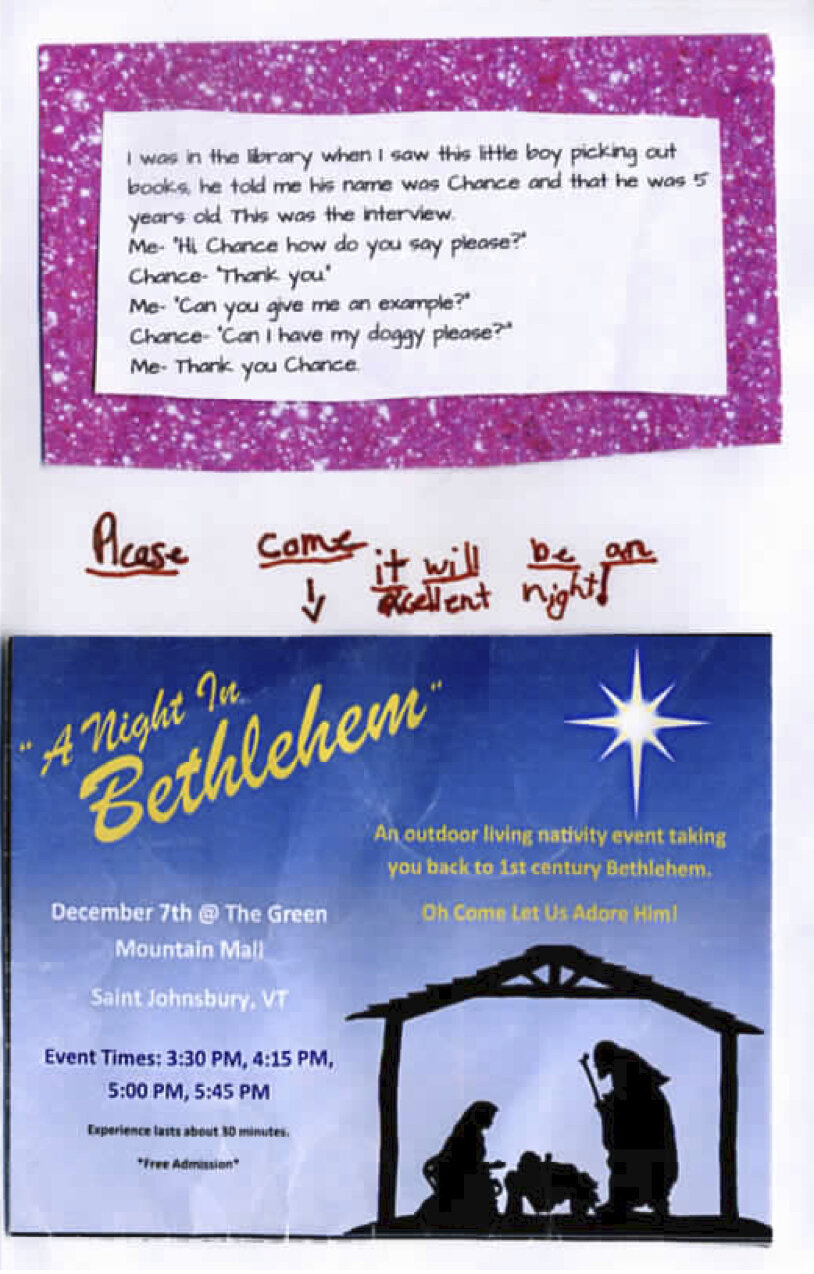 I was in the library when I saw this little boy picking out
books, he told me his name was Chance and that he was 5
years old. This was the interview.
Me- "Hi, Chance how do you say please?"
Chance- "Thank you"
Me- "Can you give me an example?"
Chance- "Can I have my doggy please?"
Me- Thank you Chance.
Please come it will be an
excellent night!
"A Night In
Bethlehem"
An outdoor living nativity event taking
you back to 1st century Bethlehem.
Oh Come Let Us Adore Him!
December 7th @ The Green
Mountain Mall
Saint Johnsbury, VT
Event Times: 3:30 PM, 4:15 PM,
5:00 PM, 5:45 PM
Experience lasts about 30 minutes.
*Free Admission*